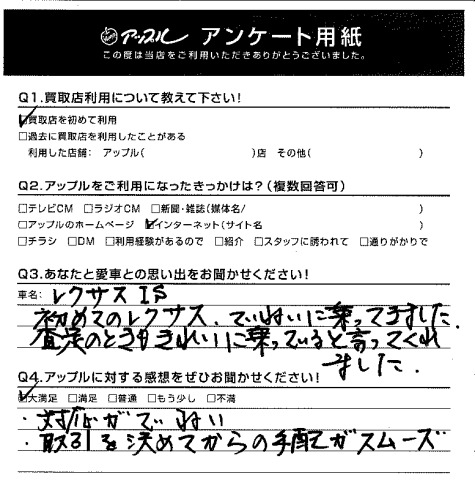 アップル アンケート用紙
この度は当店をご利用いただきありがとうございました。
Q1.買取店利用について教えて下さい!
☑買取店を初めて利用
□過去に買取店を利用したことがある
利用した店舗: アップル( )店 その他( )
Q2.アップルをご利用になったきっかけは?(複数回答可)
□テレビCM □ラジオCM □新聞・雑誌(媒体名/ )
□アップルのホームページ ☑インターネット(サイト名 )
□チラシ □DM □利用経験があるので □紹介 □スタッフに誘われて □通りがかりで
Q3.あなたと愛車との思い出をお聞かせください!
車名: レクサス IS
初めてのレクサス、ていねいに乗ってきました。
査定のときもきれいに乗っていると言ってくれ
ました。
Q4.アップルに対する感想をぜひお聞かせください!
☑大満足 □満足 □普通 □もう少し □不満
・対応がていねい
・取引を決めてからの手配がスムーズ